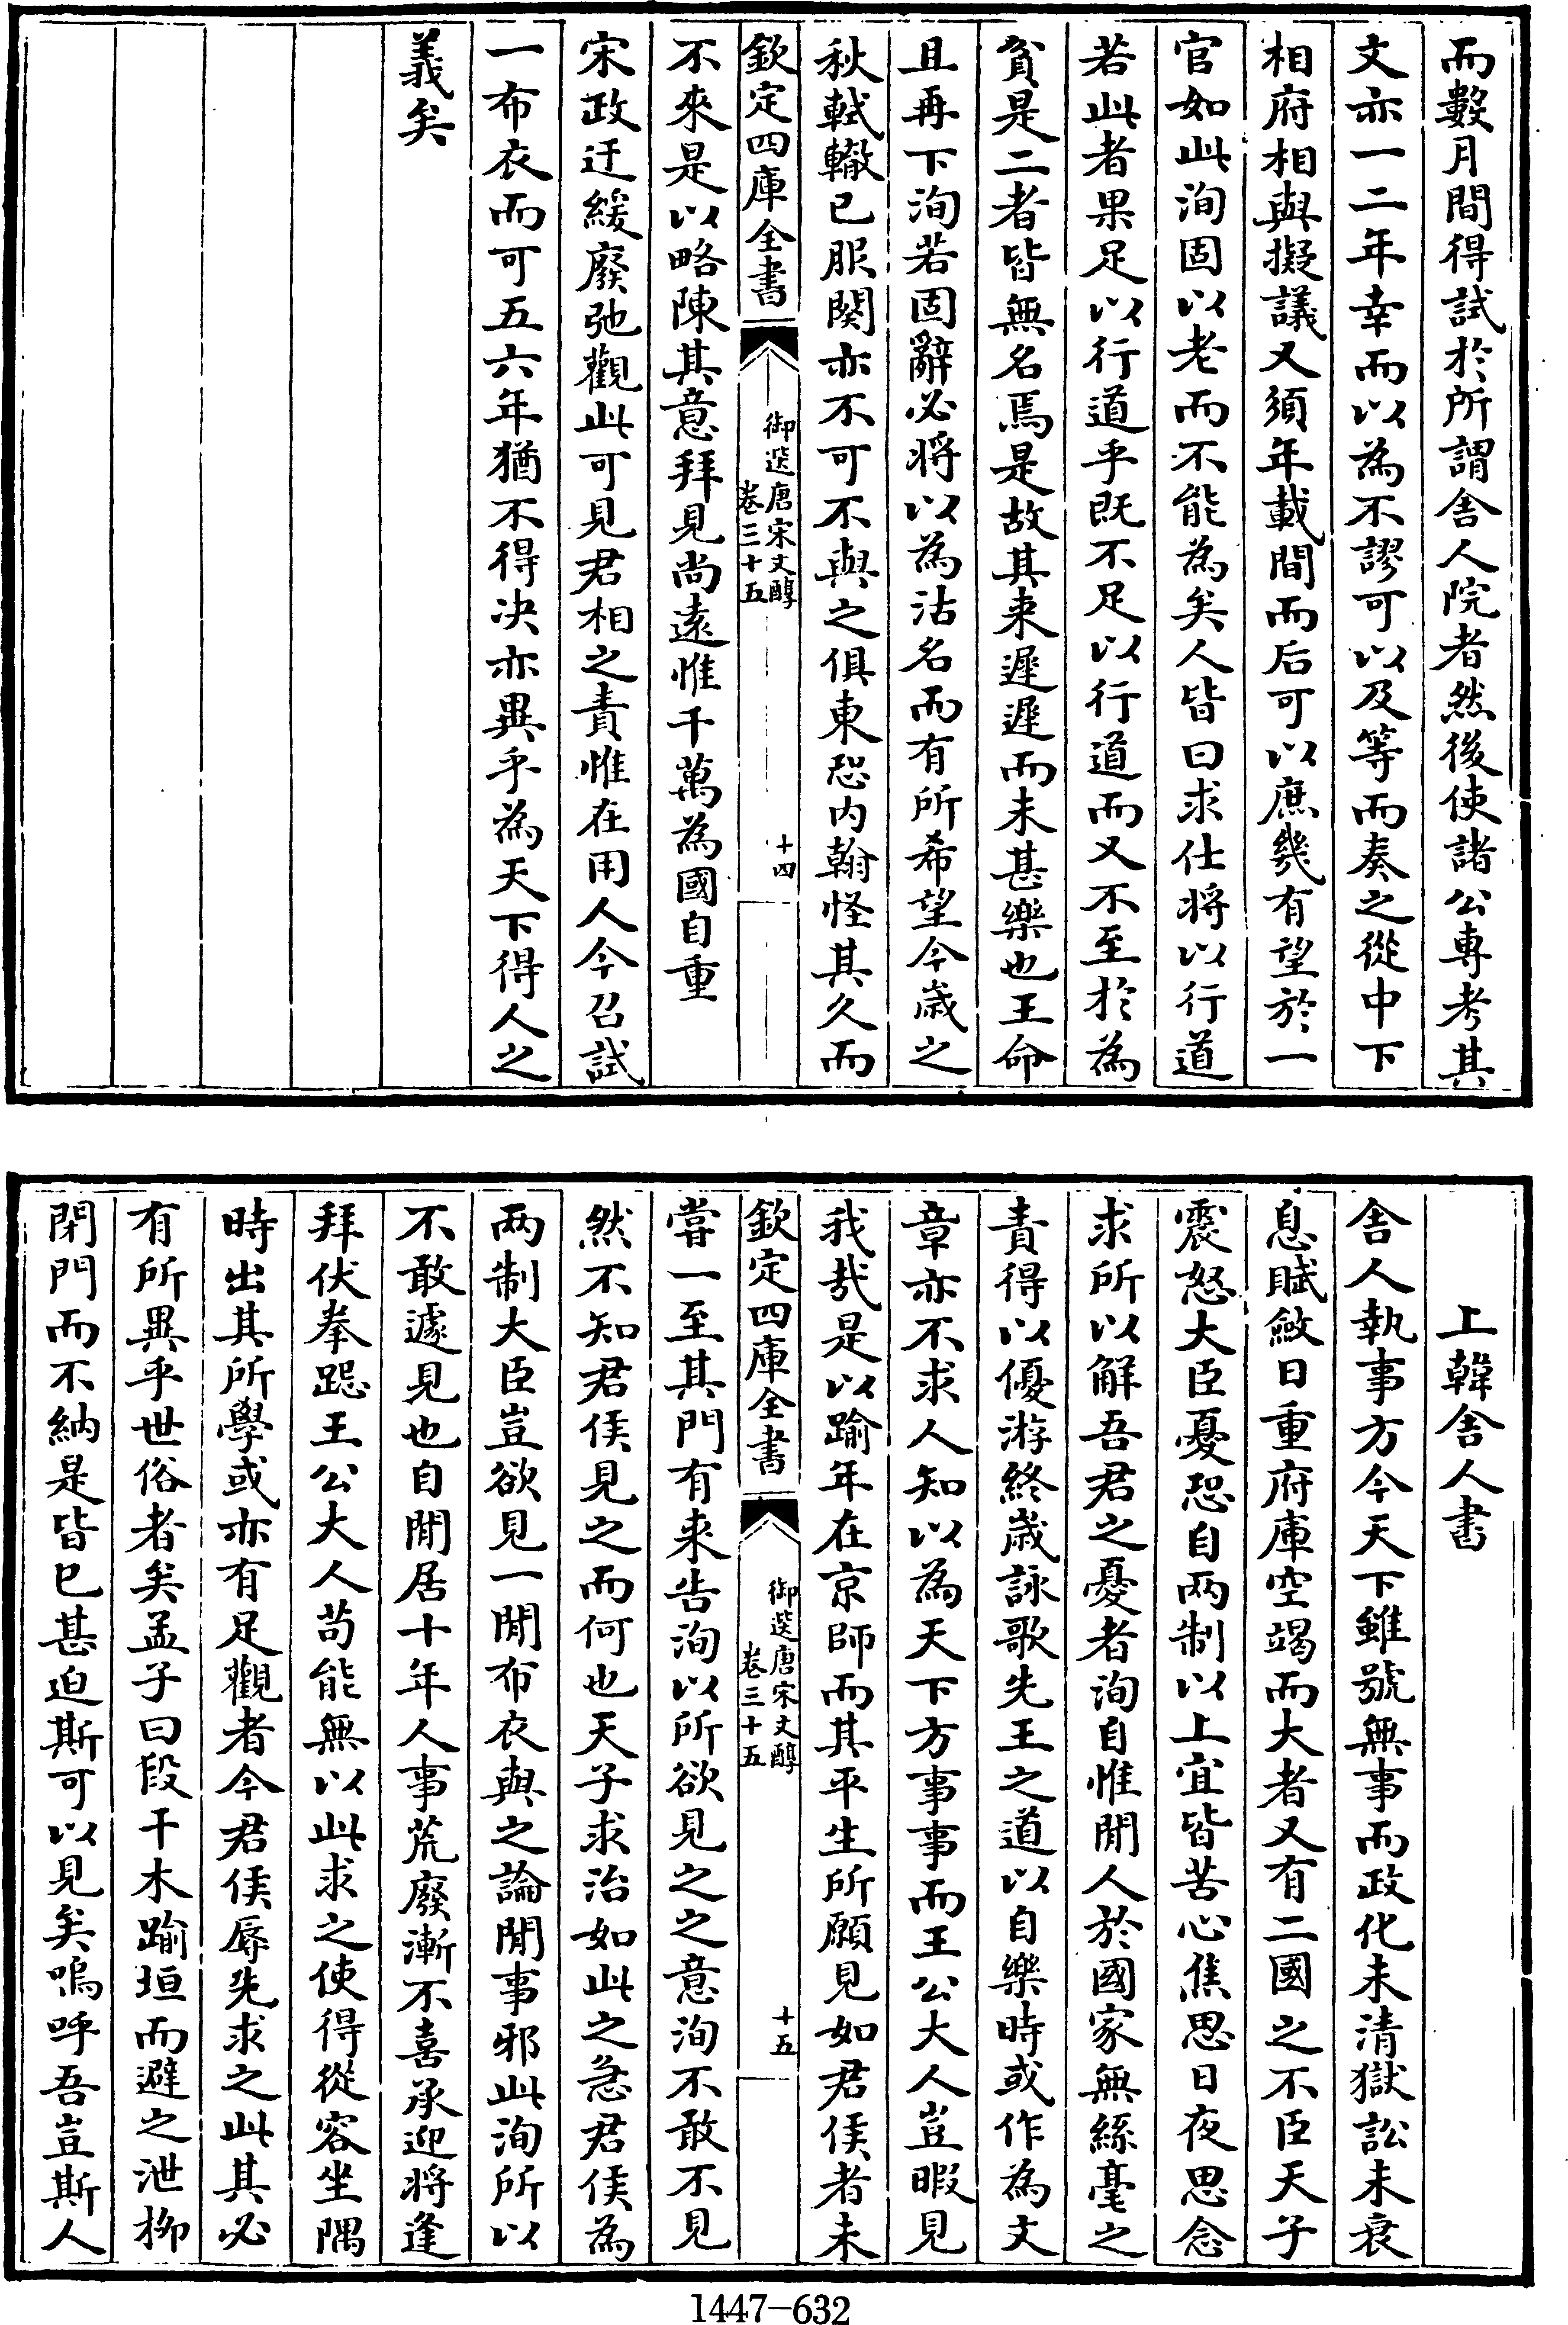 而數月間得試於所謂舍人院者然後使諸公專考其
文亦一二年幸而以為不謬可以及等而奏之從中下
相府相與擬議又須年載間而后可以庶幾有望於一
官如此洵固以老而不能為矣人皆曰求仕將以行道
若此者果足以行道乎既不足以行道而又不至於為
貧是二者皆無名焉是故其来遲遲而未甚樂也王命
且再下洵若固辭必將以為沽名而有所希望今歲之
秋軾轍已服闋亦不可不與之俱東恐内翰怪其久而
欽定四庫全書
御選唐宋文醇
卷三十五
十四
不來是以略陳其意拜見尚遠惟千萬為國自重
宋政迂緩廢弛觀此可見君相之責惟在用人今召試
一布衣而可五六年猶不得决亦異乎為天下得人之
義矣
上韓舍人書
舍人執事方今天下雖號無事而政化未清獄訟未衰
息賦斂日重府庫空竭而大者又有二國之不臣天子
震怒大臣憂恐自两制以上宜皆苦心焦思日夜思念
求所以解吾君之憂者洵自惟閒人於國家無絲毫之
責得以優游終歲詠歌先王之道以自樂時或作為文
章亦不求人知以為天下方事事而王公大人豈暇見
我哉是以踰年在京師而其平生所願見如君侯者未
欽定四庫全書
御選唐宋文醇
卷三十五
十五
嘗一至其門有来告洵以所欲見之之意洵不敢不見
然不知君侯見之而何也天子求治如此之急君侯為
两制大臣豈欲見一閒布衣與之論閒事邪此洵所以
不敢遽見也自閒居十年人事荒廢漸不喜承迎將逢
拜伏拳跽王公大人苟能無以此求之使得從容坐隅
時出其所學或亦有足觀者今君侯辱先求之此其必
有所異乎世俗者矣孟子曰段干木踰垣而避之泄柳
閉門而不納是皆已甚迫斯可以見矣嗚呼吾豈斯人
1447-632